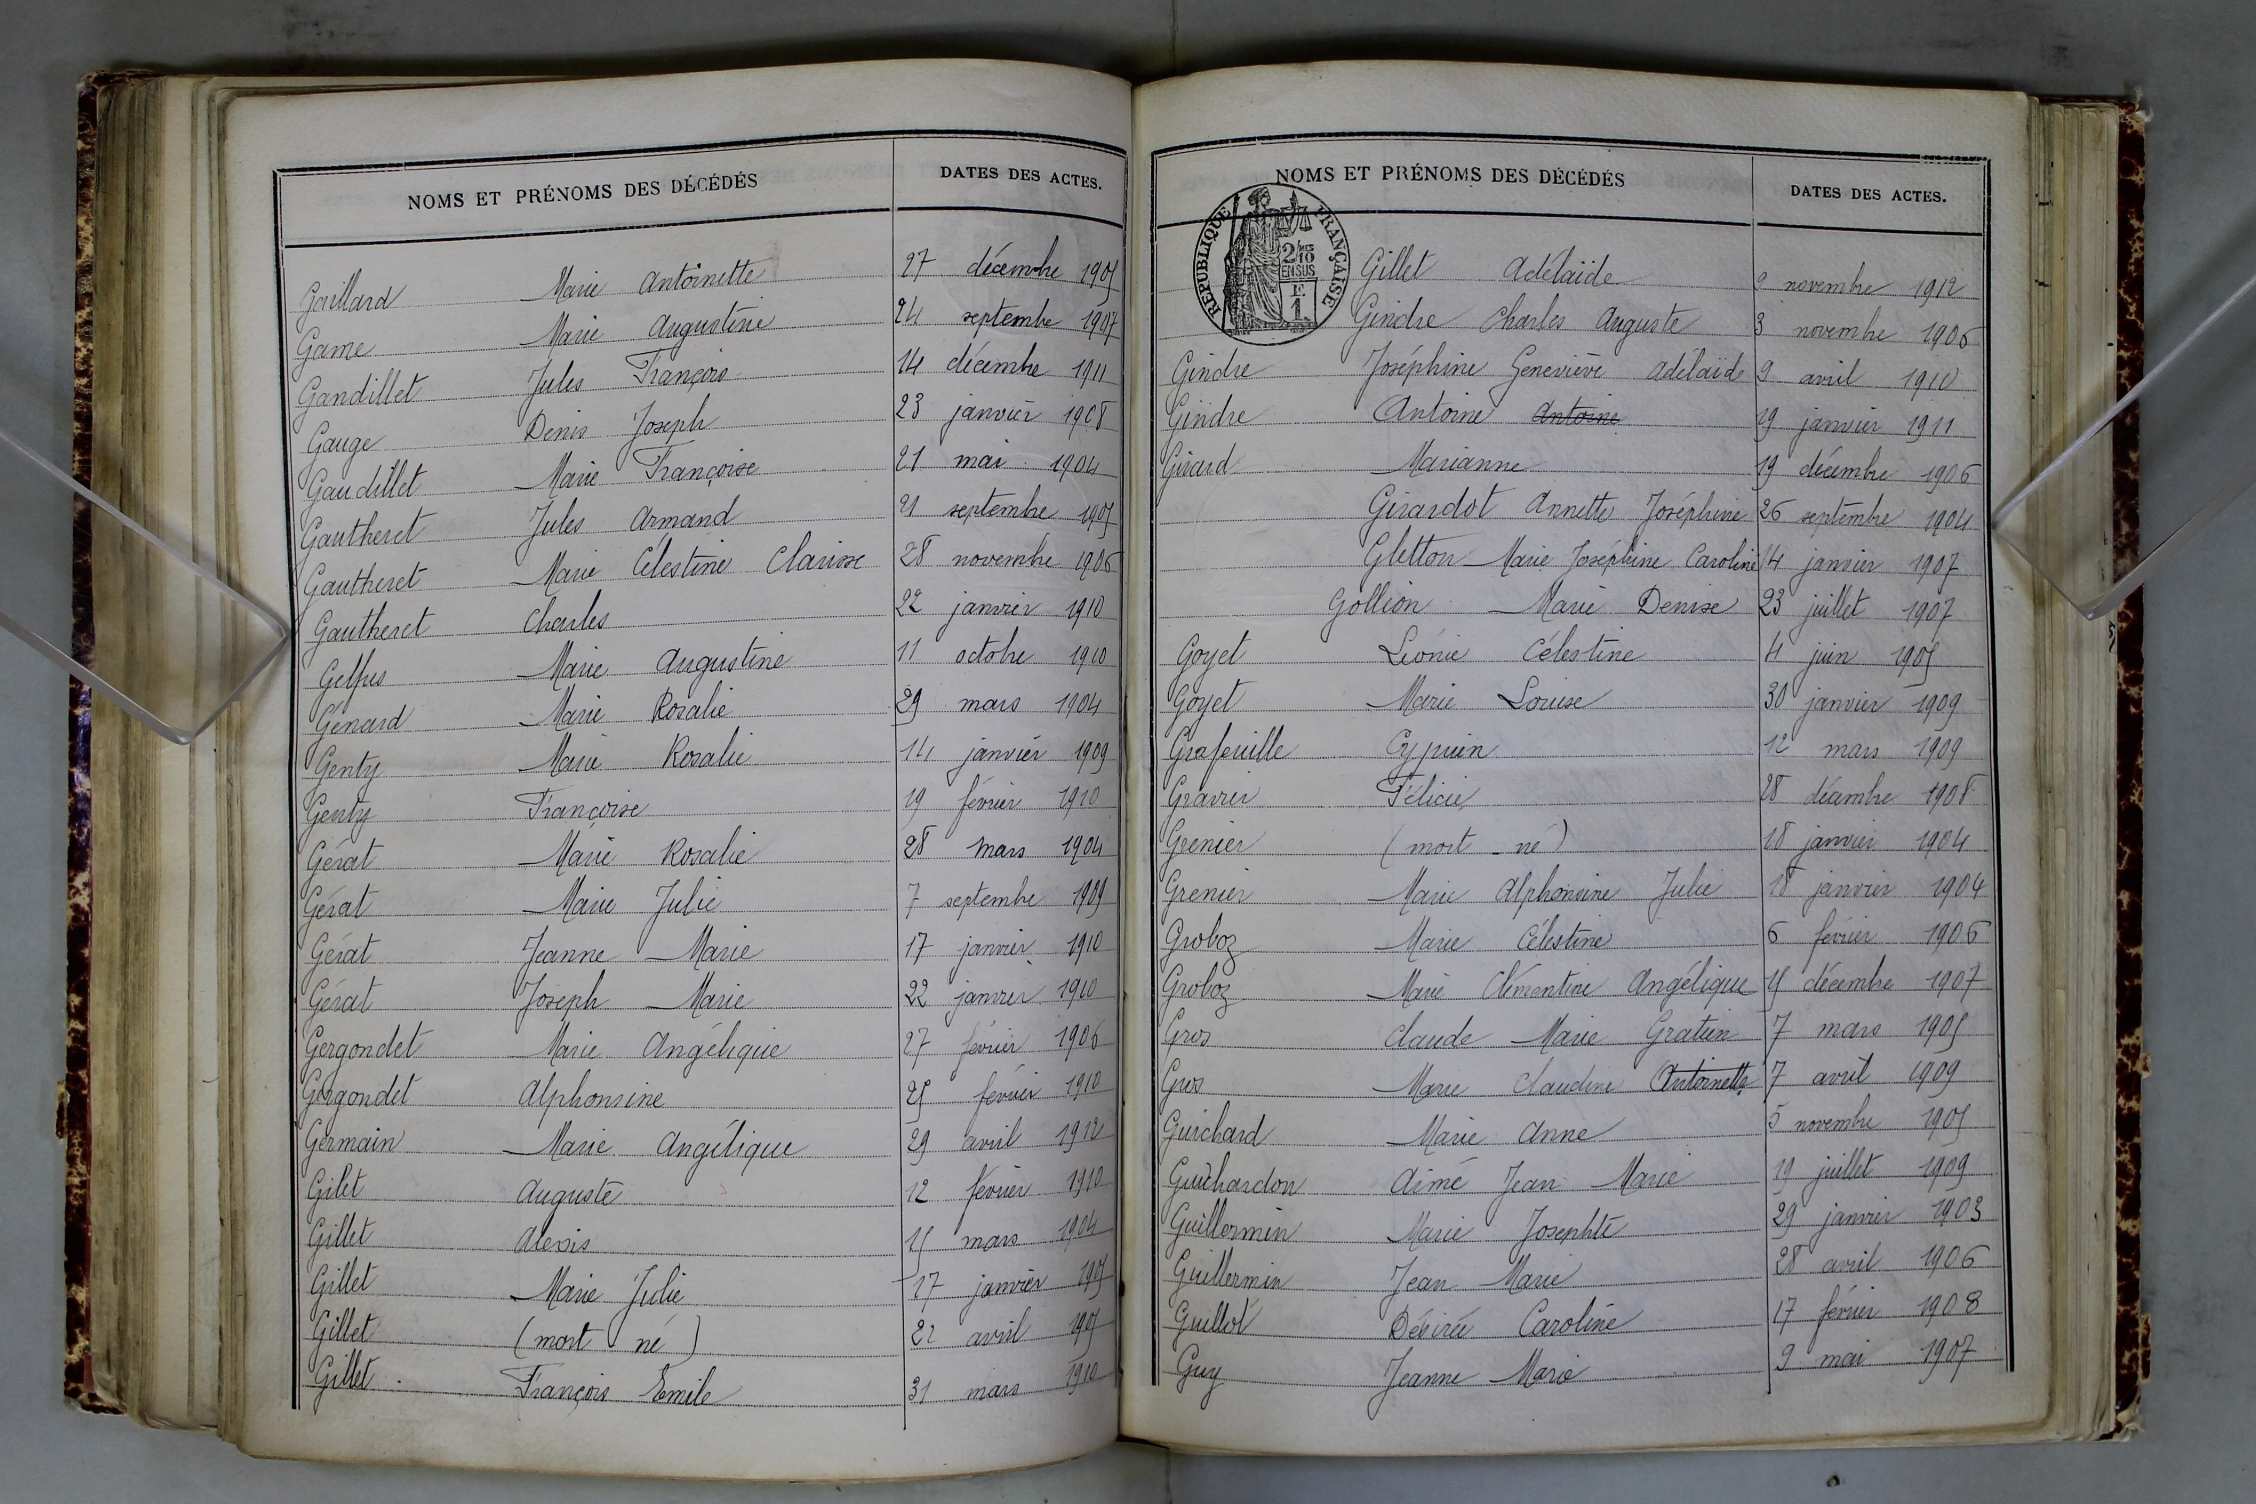 NOMS ET PRÉNOMS DES DÉCÉDÉS DATES DES ACTES.
Gaillard Marie Antoinette 27 décembre 1905
Game Marie Augustine 24 septembre 1907
Gandillet Jules François 14 décembre 1911
Gauge Denis Joseph 23 janvier 1908
Gaudillet Marie Françoise 21 mai 1904
Gautheret Jules Armand 21 septembre 1905
Gautheret Marie Célestine Clarisse 28 novembre 1906
Gautheret Charles 22 janvier 1910
Gelpus Marie Augustine 11 octobre 1910
Génard Marie Rosalie 29 mars 1904
Genty Marie Rosalie 14 janvier 1909
Genty Françoise 19 février 1910
Gérat Marie Rosalie 28 mars 1904
Gérat Marie Julie 7 septembre
Gérat Jeanne Marie 17 janvier 1910
Gérat Joseph Marie 22 janvier 1910
Gergondet Marie Angélique 27 février 1906
Gergondet Alphonsine 25 février 1910
Germain Marie Angélique 29 avril 1912
Gilet Auguste 12 février 1910
Gillet Alexis 15 mars 1904
Gillet Marie Julie 17 janvier 1905
Gillet (mort né) 22 avril 1905
Gillet François Emile 31 mars 1910
NOMS ET PRÉNOMS DES DÉCÉDÉS DATES DES ACTES.
RÉPUBLIQUE FRANÇAISE
2/10
EN SUS
1F
Gillet Adélaïde 2 novembre 1912
Gindre Charles Auguste 3 novembre 1906
Gindre Joséphine Geneviève Adélaïde 9 avril 1910
Gindre Antoine Antoine 19 janvier 1911
Girard Marianne 19 décembre 1906
Girardot Annette Joséphine 26 septembre 1904
Gletton Marie Joséphine Caroline 14 janvier 1907
Gollion Marie Denise 23 juillet 1907
Goyet Léonie Célestine 4 juin 1905
Goyet Marie Louise 30 janvier 1909
Grafeuille Cyprien 12 mars 1909
Gravier Félicie 28 décembre 1908
Grenier (mort-né) 18 janvier 1904
Grenier Marie Alphonsine Julie 18 janvier 1904
Groboz Marie Célestine 6 février 1906
Groboz Marie Clémentine Angélique 15 décembre 1907
Gros Claude Marie Gratien 7 mars 1905
Gros Marie Claudine Antoinette 7 avril 1909
Guichard Marie Anne 5 novembre 1905
Guichardon Aimé Jean Marie 19 juillet 1909
Guillermin Marie Josephte 29 janvier 1903
Guillermin Jean Marie 28 avril 1906
Guillot Désirée Caroline 17 février 1908
Guy Jeanne Marie 9 mai 1907